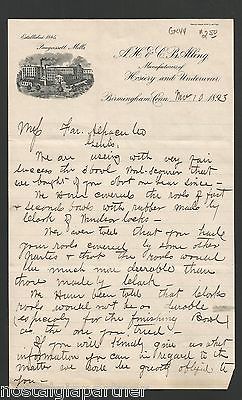 Established 1845.
Paugassett Mills
A. H. & C. B. Alling
Manufacturers of
Hosiery and Underwear.
Birmingham, Conn. Nov 10 1893
Mess Far. Alpaca Co
Gents.
We are using with very fair
success the bowl wool-scourer that
we bought of you about one year since -
We have covered the rools of first
& second bowl with rubber made by
Clark of Windsor Locks -
You ever told that you had
your rools covered by some other
parties & that the rools would
be much more durable than
those made by Clark -
We have been told that Clarks
rools would not be so durable
especially for the finishing Bowl
as the one you tried -
If you will kindly give us what
information you can in regard to the
matter we shall be greatly obliged to
you -
nostalgiapartner